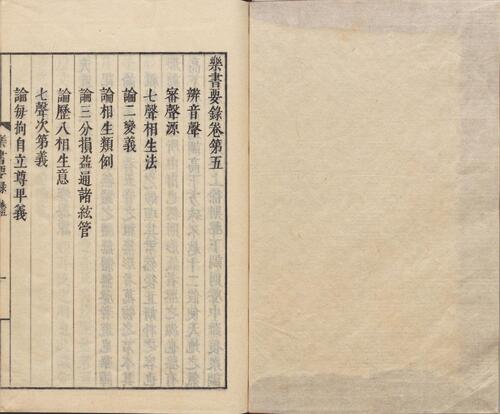 樂書要錄卷第五
辨音聲
審聲源
七聲相生法
論二變義
論相生類例
論三分損益通諸絃管
論歷八相生意
七聲次第義
論每均自立尊卑義
樂書要錄
一